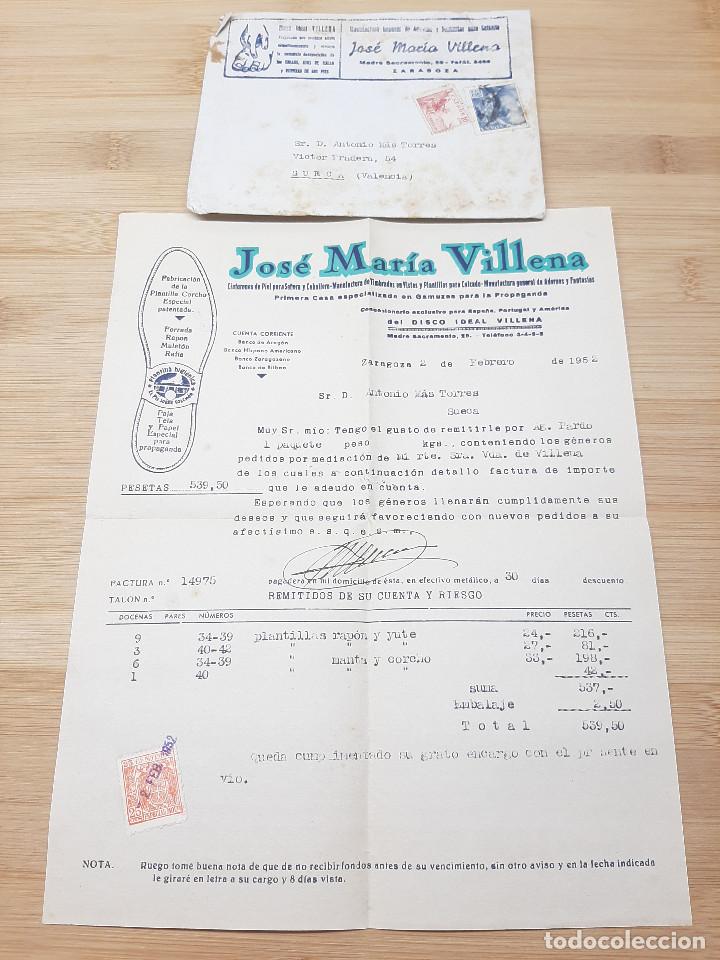 Disco Ideal VILLENA
José María Villena
Madre Sacramento, 25 - Teléf. 3495
ZARAGOZA
Sr. D. Antonio Más Torres
Victor Pradera, 54
SUECA (Valencia)
José María Villena
Cinturones de Piel para Señora y Caballero - Manufactura de Timbrados en Vistas y Plantillas para Calzado - Manufactura general de Adornos y Fantasías
Primera Casa especializada en Gamuzas para la Propaganda
Concesionario exclusivo para España, Portugal y América
del DISCO IDEAL VILLENA
Madre Sacramento, 25. - Teléfono
Fabricación
de la
Plantilla Corcho
Especial
patentada.
Forrada
Rapon
Muletón
Rafia
Plantilla higiénica
Paja
Tela
y Papel
Especial
para
propaganda
CUENTA CORRIENTE
Banco de Aragón
Banco Hispano Americano
Banco Zaragozano
Banco de Bilbao
Zaragoza 2 de Febrero de 1952
Sr. D. Antonio Más Torres
Sueca
Muy Sr. mío: Tengo el gusto de remitirle por Ag. Pardo
1 paquete peso kgs., conteniendo los géneros
pedidos por mediación de Mi rte. Sra. Vda. de Villena
de los cuales a continuación detallo factura de importe
PESETAS 539,50 que le adeudo en cuenta.
Esperando que los géneros llenarán cumplidamente sus
deseos y que seguirá favoreciendo con nuevos pedidos a su
afectísimo s. s. q. e. s. m.,
FACTURA n.º 14975 pagadera en mi domicilio de ésta, en efectivo metálico, a 30 días descuento
TALON n.º REMITIDOS DE SU CUENTA Y RIESGO
DOCENAS PARES NÚMEROS PRECIO PESETAS CTS.
9 34-39 plantillas rapón y yute 24,- 216,-
3 40-42 " " " 27,- 81,-
6 34-39 " manta y corcho 33,- 198,-
1 40 " " " 42,-
suma 537,-
Embalaje 2,50
Total 539,50
2 FEB. 1952
Queda cumplimentado su grato encargo con el presente en
vío.
NOTA. Ruego tome buena nota de que de no recibir fondos antes de su vencimiento, sin otro aviso y en la fecha indicada
le giraré en letra a su cargo y 8 días vista.
todocoleccion.net